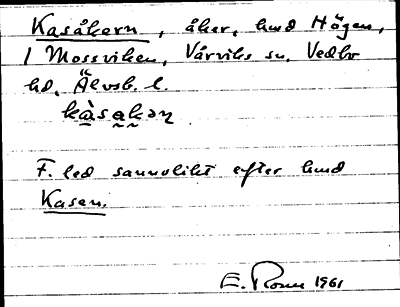 Kasåkern, åker, hmd Högen,
1 Mossviken, Vårviks sn, Vedbo
hd, Älvsb. l.
kàsakən
F. led sannolikt efter hmd
Kasen.
E. 1961